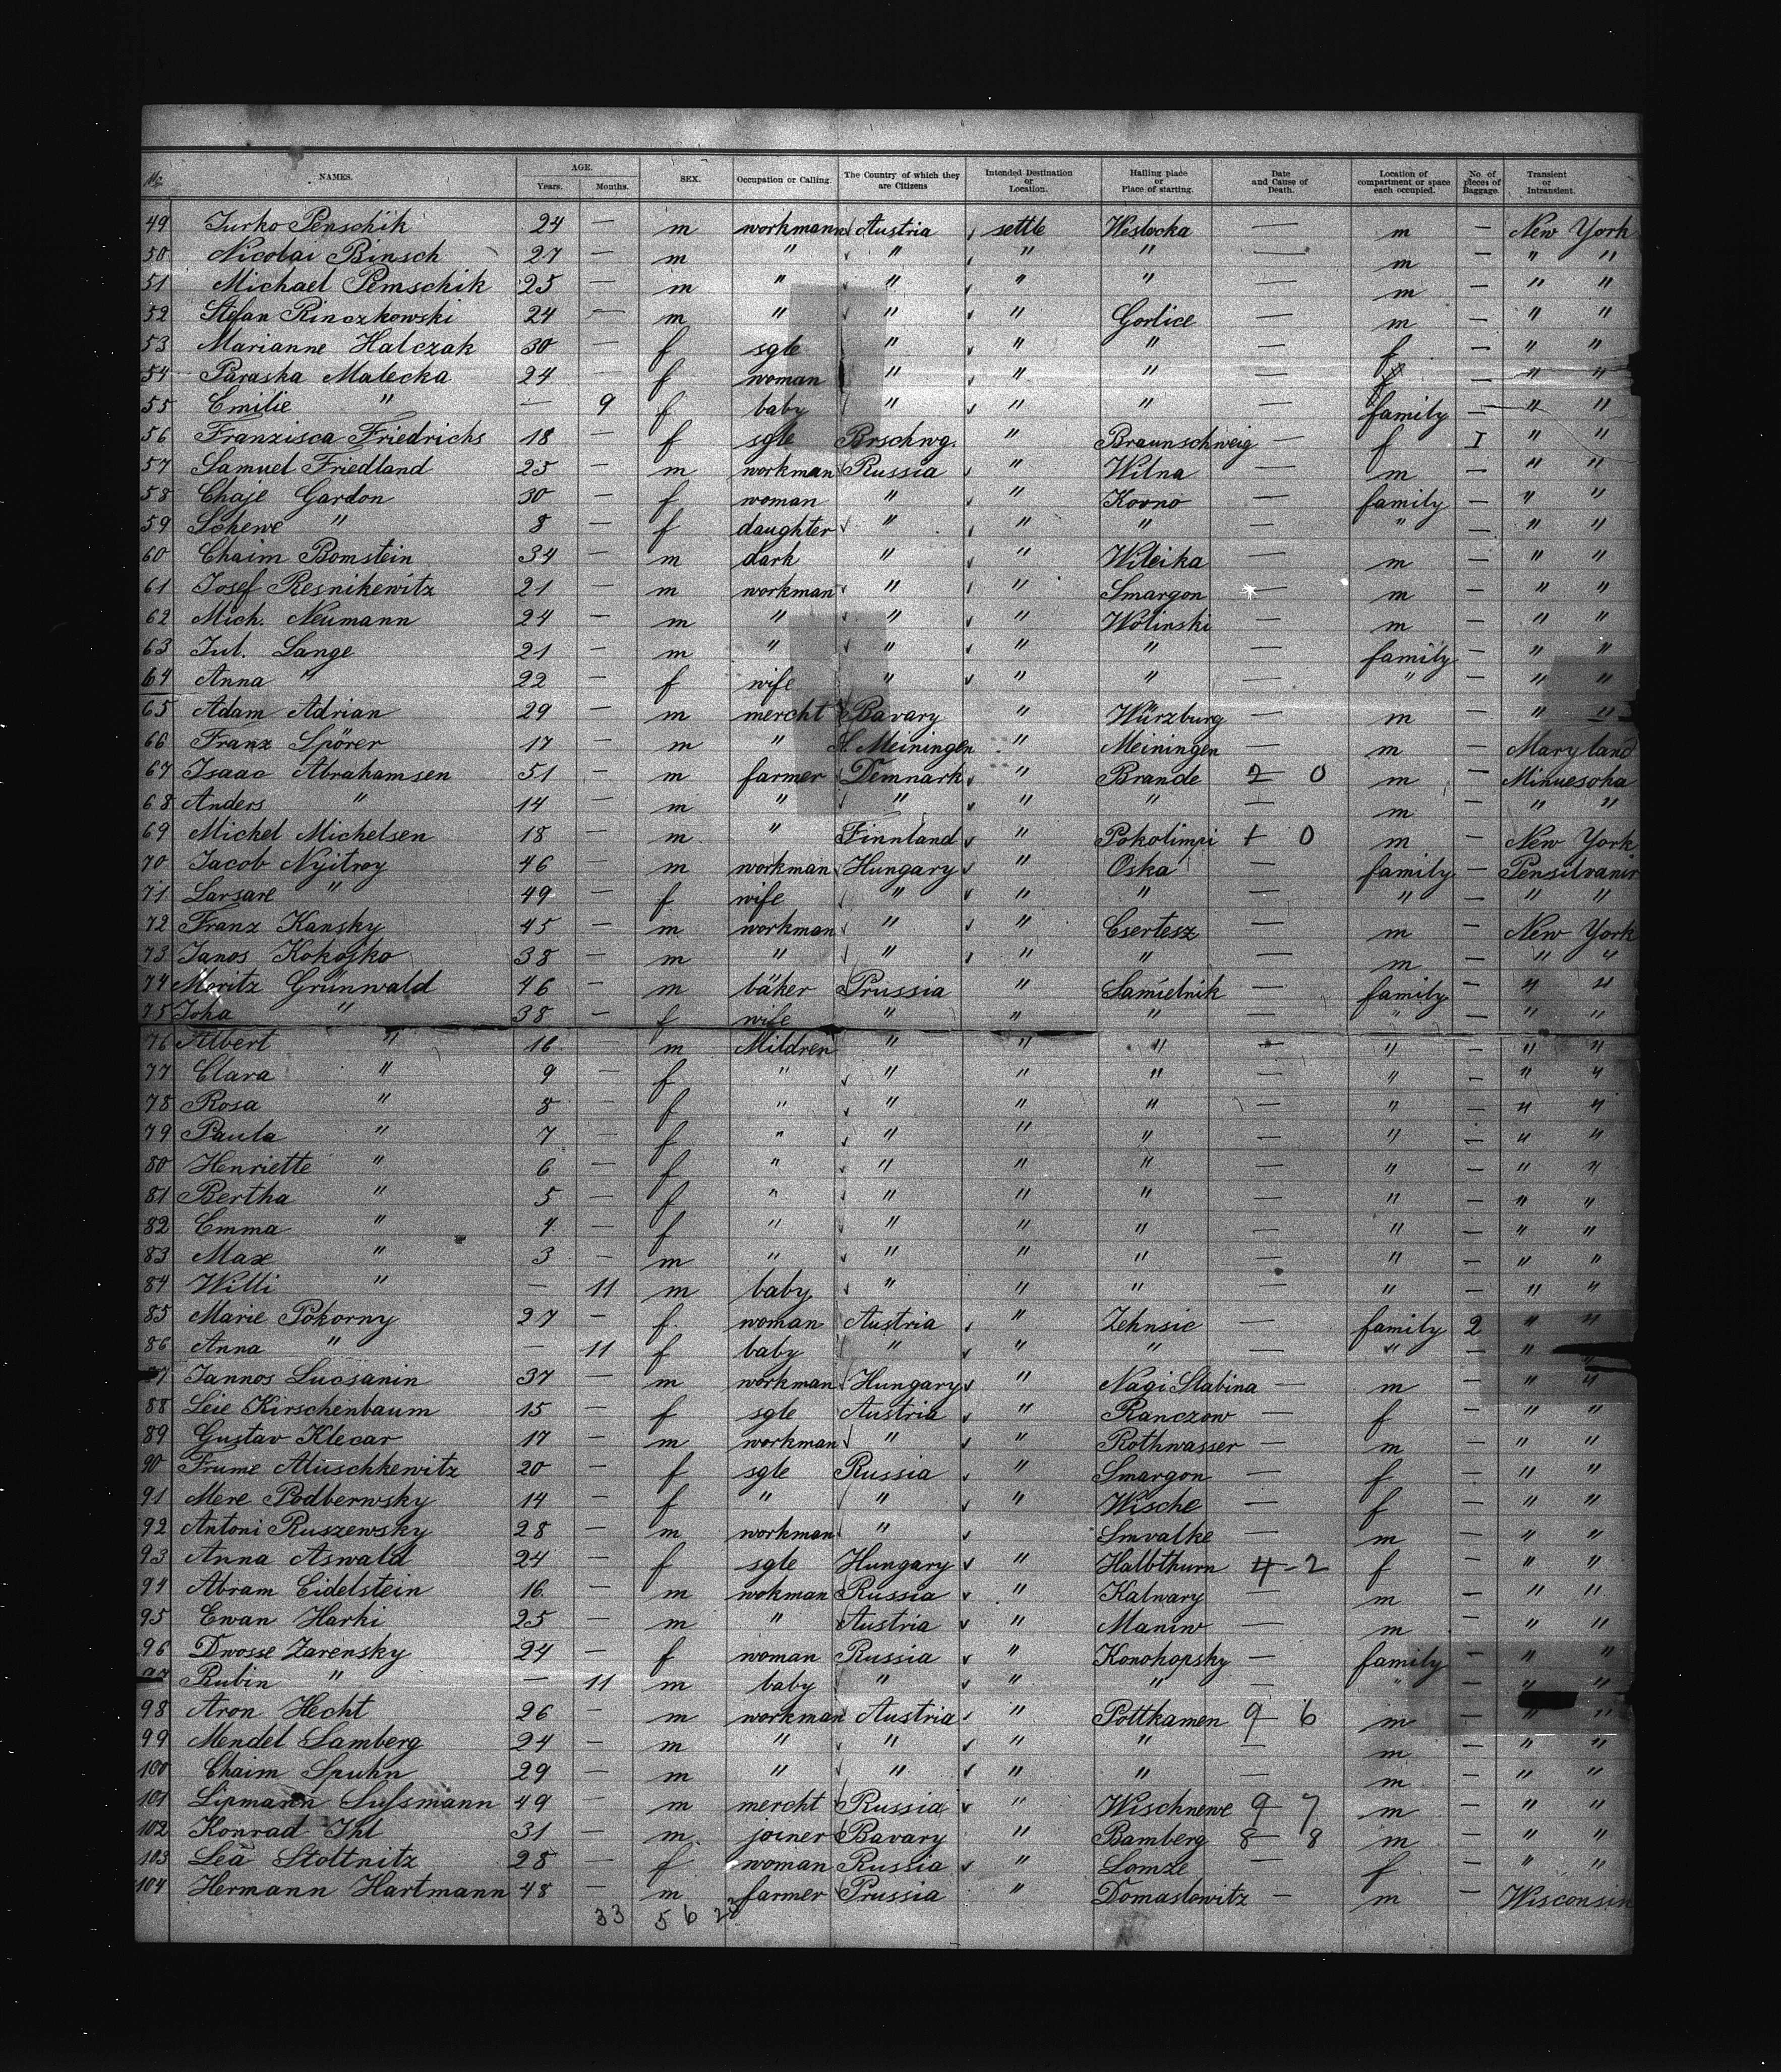 No. NAMES. AGE. Years. Months. SEX. Occupation or Calling. The Country of which they are Citizens Intended Destination or Location. Hailing place or Place of starting. Date and Cause of Death. Location of compartment or space each occupied. No. of pieces of Baggage. Transient or Intransient.
49 Jurko Penschik 24 — m workmann Austria settle Weslocka — m — New York
50 Nicolai Binsch 27 — m " " " " — m — " "
51 Michael Pemschik 25 — m " " " " — m — " "
52 Stefan Rinczkowski 24 — m " " " Gorlice — m — " "
53 Marianne Halczak 30 — f sgle " " " — f — " "
54 Paraska Malecka 24 — f woman " " " — — " "
55 Emilie " — 9 f baby " " " — family — " "
56 Franzisca Friedrichs 18 — f sgle Brschwg. " Braunschweig — f I " "
57 Samuel Friedland 25 — m workman Russia " Wilna — m — " "
58 Chaje Gardon 30 — f woman " " Kovno — family — " "
59 Schewe " 8 — f daughter " " " — " — " "
60 Chaim Bomstein 34 — m dark " " Wileika — m — " "
61 Josef Resnikewitz 21 — m workman " " Smargon — m — " "
62 Mich. Neumann 24 — m " " " Wolinski — m — " "
63 Jul. Lange 21 — m " " " " — family — " "
64 Anna " 22 — f wife " " " — " — " "
65 Adam Adrian 29 — m mercht Bavary " Würzburg — m — " "
66 Franz Spörer 17 — m " S. Meiningen " Meiningen — m — Maryland
67 Isaac Abrahamsen 51 — m farmer Demnark " Brande 2 0 m — Minuesoha
68 Anders " 14 — m " " " " — m — " "
69 Michel Michelsen 18 — m " Finnland " Pokolimpi 1 0 m — New York
70 Jacob Nyitroy 46 — m workman Hungary " Oska — family — Pensilvanir
71 Larsare " 49 — f wife " " " — " — " "
72 Franz Kansky 45 — m workman " " Csertesz — m — New York
73 Janos Kokojko 38 — m " " " " — m — " "
74 Moritz Grünwald 46 — m bäker Prussia " Samielnik — family — " "
75 Joha " 38 — f wife " " " — " — " "
76 Albert " 16 m Mildren " " " — " — " "
77 Clara " 9 — f " " " " — " — " "
78 Rosa " 8 — f " " " " — " — " "
79 Paula " 7 — f " " " " — " — " "
80 Henriette " 6 — f " " " " — " — " "
81 Bertha " 5 — f " " " " — " — " "
82 Emma " 4 — f " " " " — " — " "
83 Max " 3 — m " " " " — " — " "
84 Willi " — 11 m baby " " " — " — " "
85 Marie Pokorny 27 — f. woman Austria " Zehnsic — family 2 " "
86 Anna " — 11 f baby " " " — " — " "
87 Jannos Lucsanin 37 — m workman Hungary " Nagi Slabina — m — " "
88 Leie Kirschenbaum 15 — f sgle Austria " Ranczow — f — " "
89 Gustav Klecar 17 — m workman " " Rothwasser — m — " "
90 Frume Aluschkewitz 20 — f sgle Russia " Smargon — f — " "
91 Mere Podberwsky 14 — f " " " Wische — f — " "
92 Antoni Ruszewsky 28 — m workman " Smvalke — m — " "
93 Anna Aswald 24 — f sgle Hungary " Halbthurn 4 - 2 f — " "
94 Abram Eidelstein 16 — m wokman Russia " Kalwary — m — " "
95 Ewan Harki 25 — m " Austria " Maniw — m — " "
96 Dwosse Zarensky 24 — f woman Russia " Konohopsky — family — " "
97 Rubin " — 11 m baby " " " — " — " "
98 Aron Hecht 26 — m workman Austria " Pottkamen 9 6 m — " "
99 Mendel Lamberg 24 — m " " " " — m — " "
100 Chaim Spuhn 29 — m " " " " — m — " "
101 Lipmann Sussmann 49 — m mercht Russia " Wischnewe 9 7 m — " "
102 Konrad Ihl 31 — m joiner Bavary " Bamberg 8 8 m — " "
103 Lea Stottnitz 28 — f woman Russia " Lomze — f — " "
104 Hermann Hartmann 48 — m farmer Prussia " Domaslowitz — m — Wisconsin
33 56